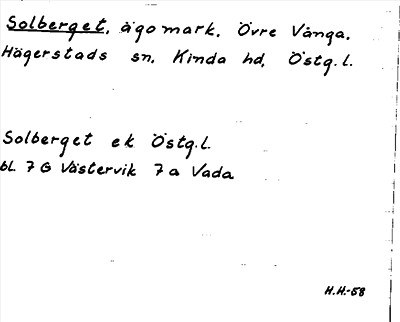 Solberget, ägomark. Övre Vånga.
Hägerstads sn, Kinda hd, Östg.l.
Solberget ek Östg.l.
bl. 7 G Västervik 7a Vada
H.H.-58